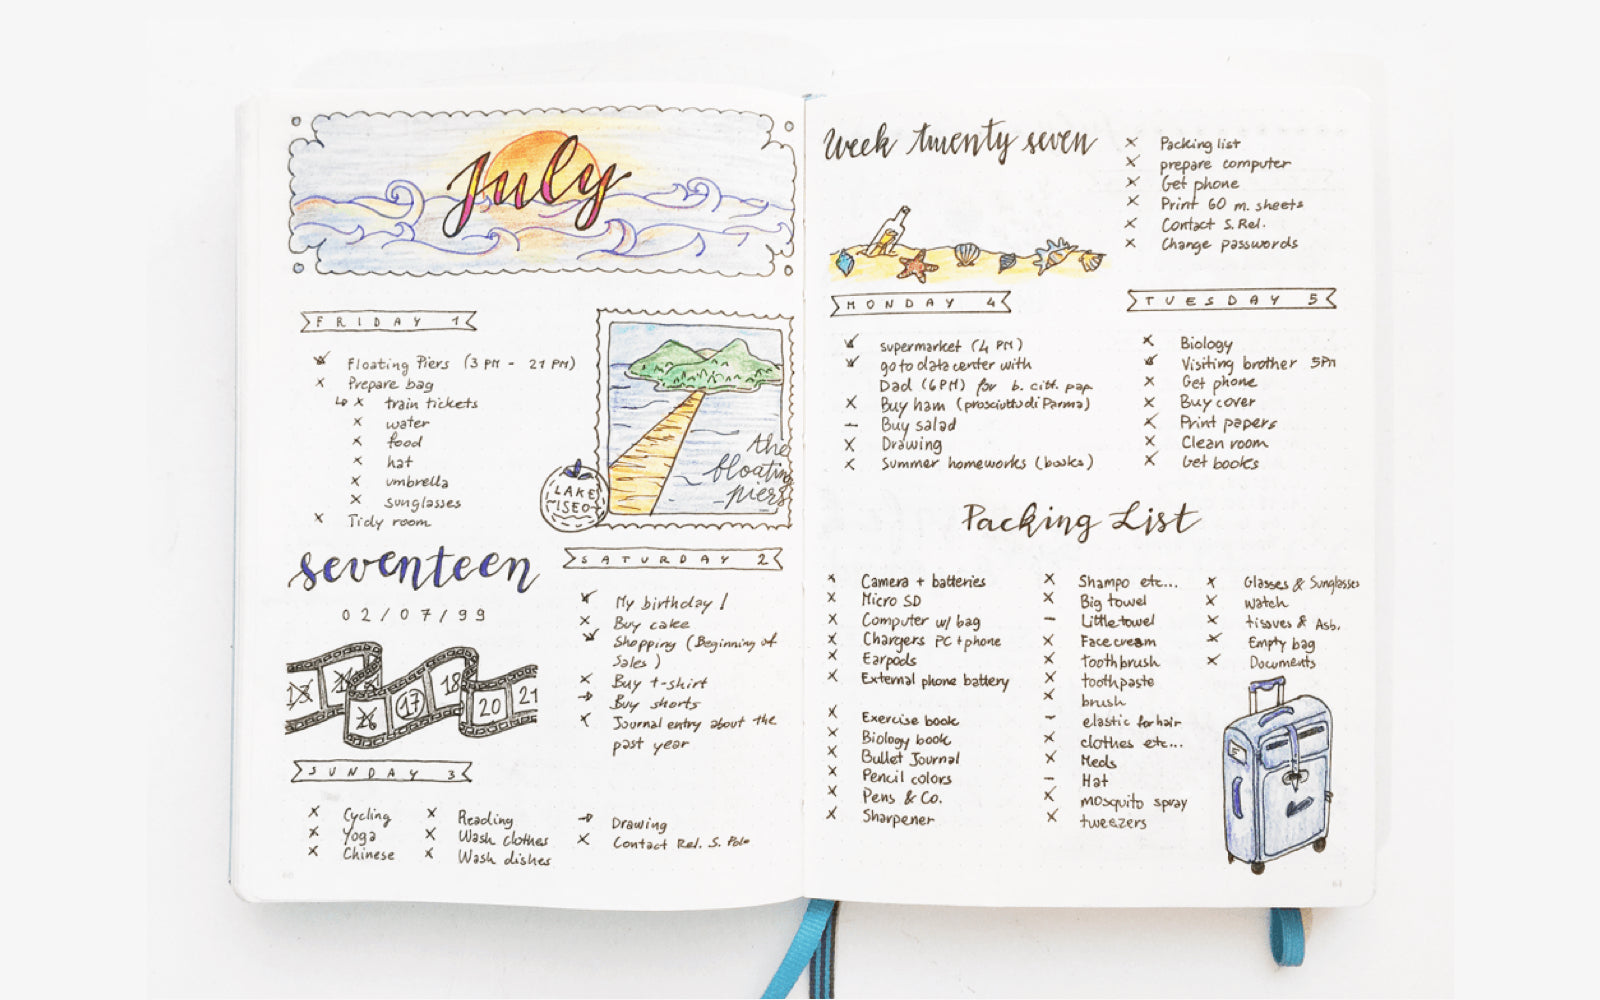 July
FRIDAY 1
Floating Piers (3 PM - 21 PM)
Prepare bag
train tickets
water
food
hat
umbrella
sunglasses
Tidy room
the
floating
piers
LAKE
ISEO
seventeen
02/07/99
13
16
17
18
20
21
SATURDAY 2
My birthday!
Buy cake
Shopping (Beginning of
Sales)
Buy t-shirt
Buy shorts
Journal entry about the
past year
SUNDAY 3
Cycling
Yoga
Chinese
Reading
Wash clothes
Wash dishes
Drawing
Contact Rel. S. Polo
Week twenty seven
Packing list
prepare computer
Get phone
Print 60 m. sheets
Contact S. Rel.
Change passwords
MONDAY 4
supermarket (4 PM)
go to data center with
Dad (6PM) for b. citt. pap.
Buy ham (prosciutto di Parma)
Buy salad
Drawing
Summer homeworks (books)
TUESDAY 5
Biology
Visiting brother 5PM
Get phone
Buy cover
Print papers
Clean room
Get books
Packing List
Camera + batteries
Micro SD
Computer w/ bag
Chargers PC + phone
Earpods
External phone battery
Exercise book
Biology book
Bullet Journal
Pencil colors
Pens & Co.
Sharpener
Shampo etc...
Big towel
Little towel
Face cream
toothbrush
toothpaste
brush
elastic for hair
clothes etc...
Meds
Hat
mosquito spray
tweezers
Glasses & Sunglasses
watch
tissues & Asb.
Empty bag
Documents